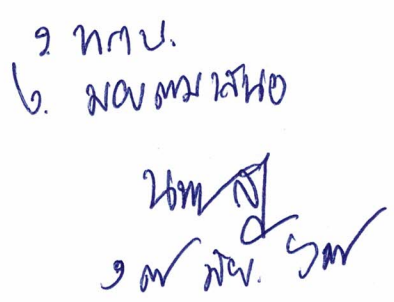 ๑. ทราบ.
๒. มอบตามเสนอ
๑๗ มิย. ๖๗